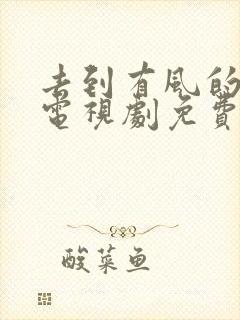 去到有风的
電視劇免費
酸菜鱼